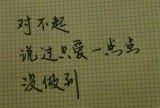 对不起
说过只爱一点点
没做到